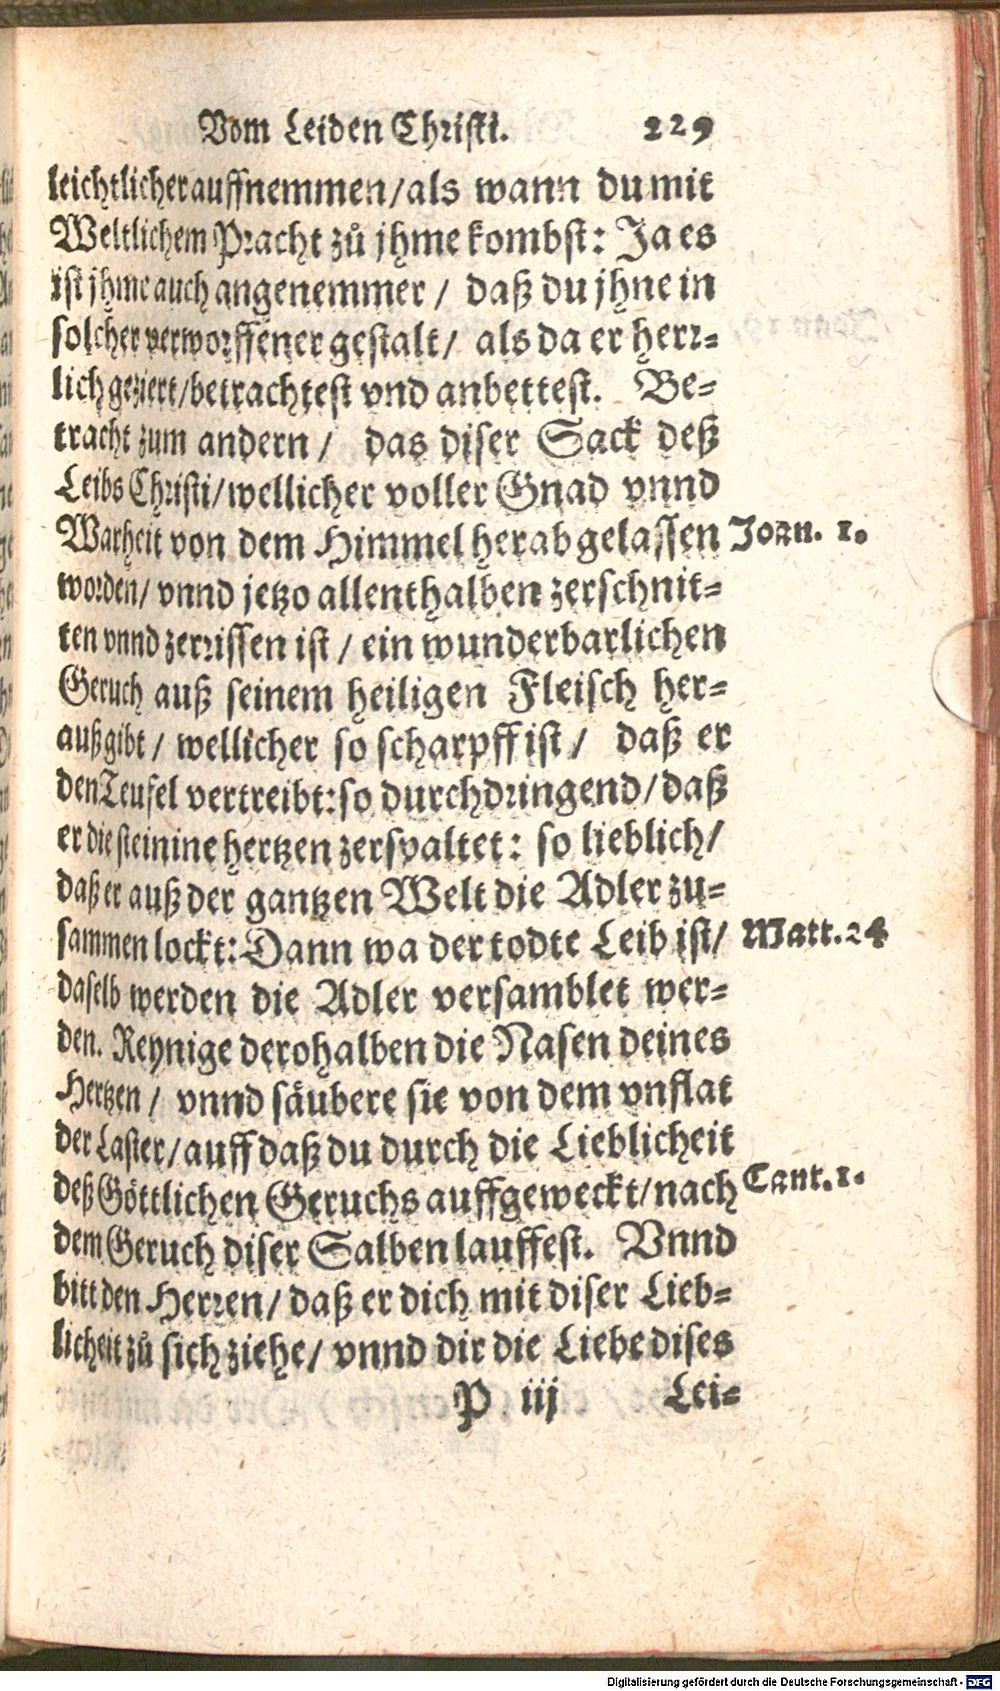 Vom Leiden Christi. 229
leichtlicher auffnemmen/als wann du mit
Weltlichem Pracht zů jhme kombst: Ja es
ist jhme auch angenemmer / daß du jhne in
solcher verworffener gestalt/ als da er herr-
lich geziert/betrachtest vnd anbettest. Be-
tracht zum andern / das diser Sack deß
Leibs Christi/wellicher voller Gnad vnnd
Warheit von dem Himmel herab gelassen Joan. 1.
worden/ vnnd jetzo allenthalben zerschnit-
ten vnnd zerrissen ist / ein wunderbarlichen
Geruch auß seinem heiligen Fleisch her-
außgibt / wellicher so scharpff ist / daß er
den Teufel vertreibt: so durchdringend/daß
er die steinine hertzen zerspaltet: so lieblich/
daß er auß der gantzen Welt die Adler zu-
sammen lockt: Dann wa der todte Leib ist/ Matt. 24
daselb werden die Adler versamblet wer-
den. Reynige derohalben die Nasen deines
Hertzen / vnnd säubere sie von dem vnflat
der Laster/auff daß du durch die Lieblicheit
deß Göttlichen Geruchs auffgeweckt/nach Cant. 1.
dem Geruch diser Salben lauffest. Vnnd
bitt den Herren/ daß er dich mit diser Lieb-
licheit zů sich ziehe/ vnnd dir die Liebe dises
P iij Lei-
Digitalisierung gefördert durch die Deutsche Forschungsgemeinschaft - DFG